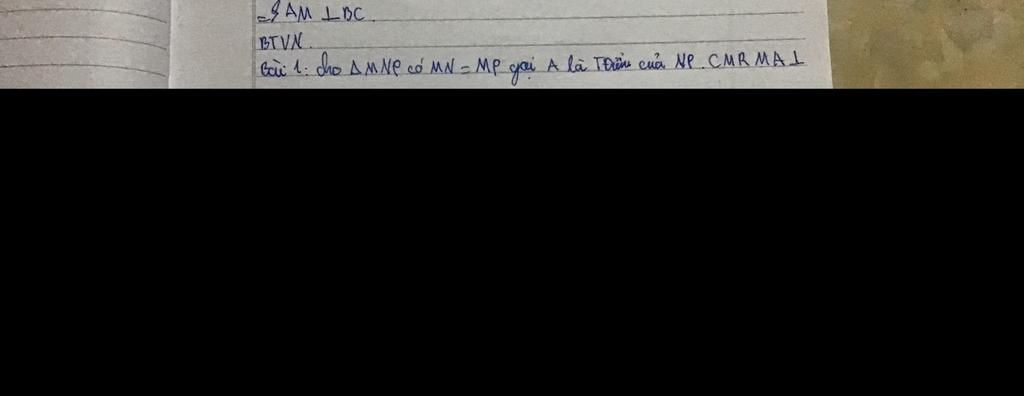 => AM ⊥ BC.
BTVN.
Bài 1: cho Δ MNP có MN = MP gọi A là TĐiểm của NP. CMR MA ⊥